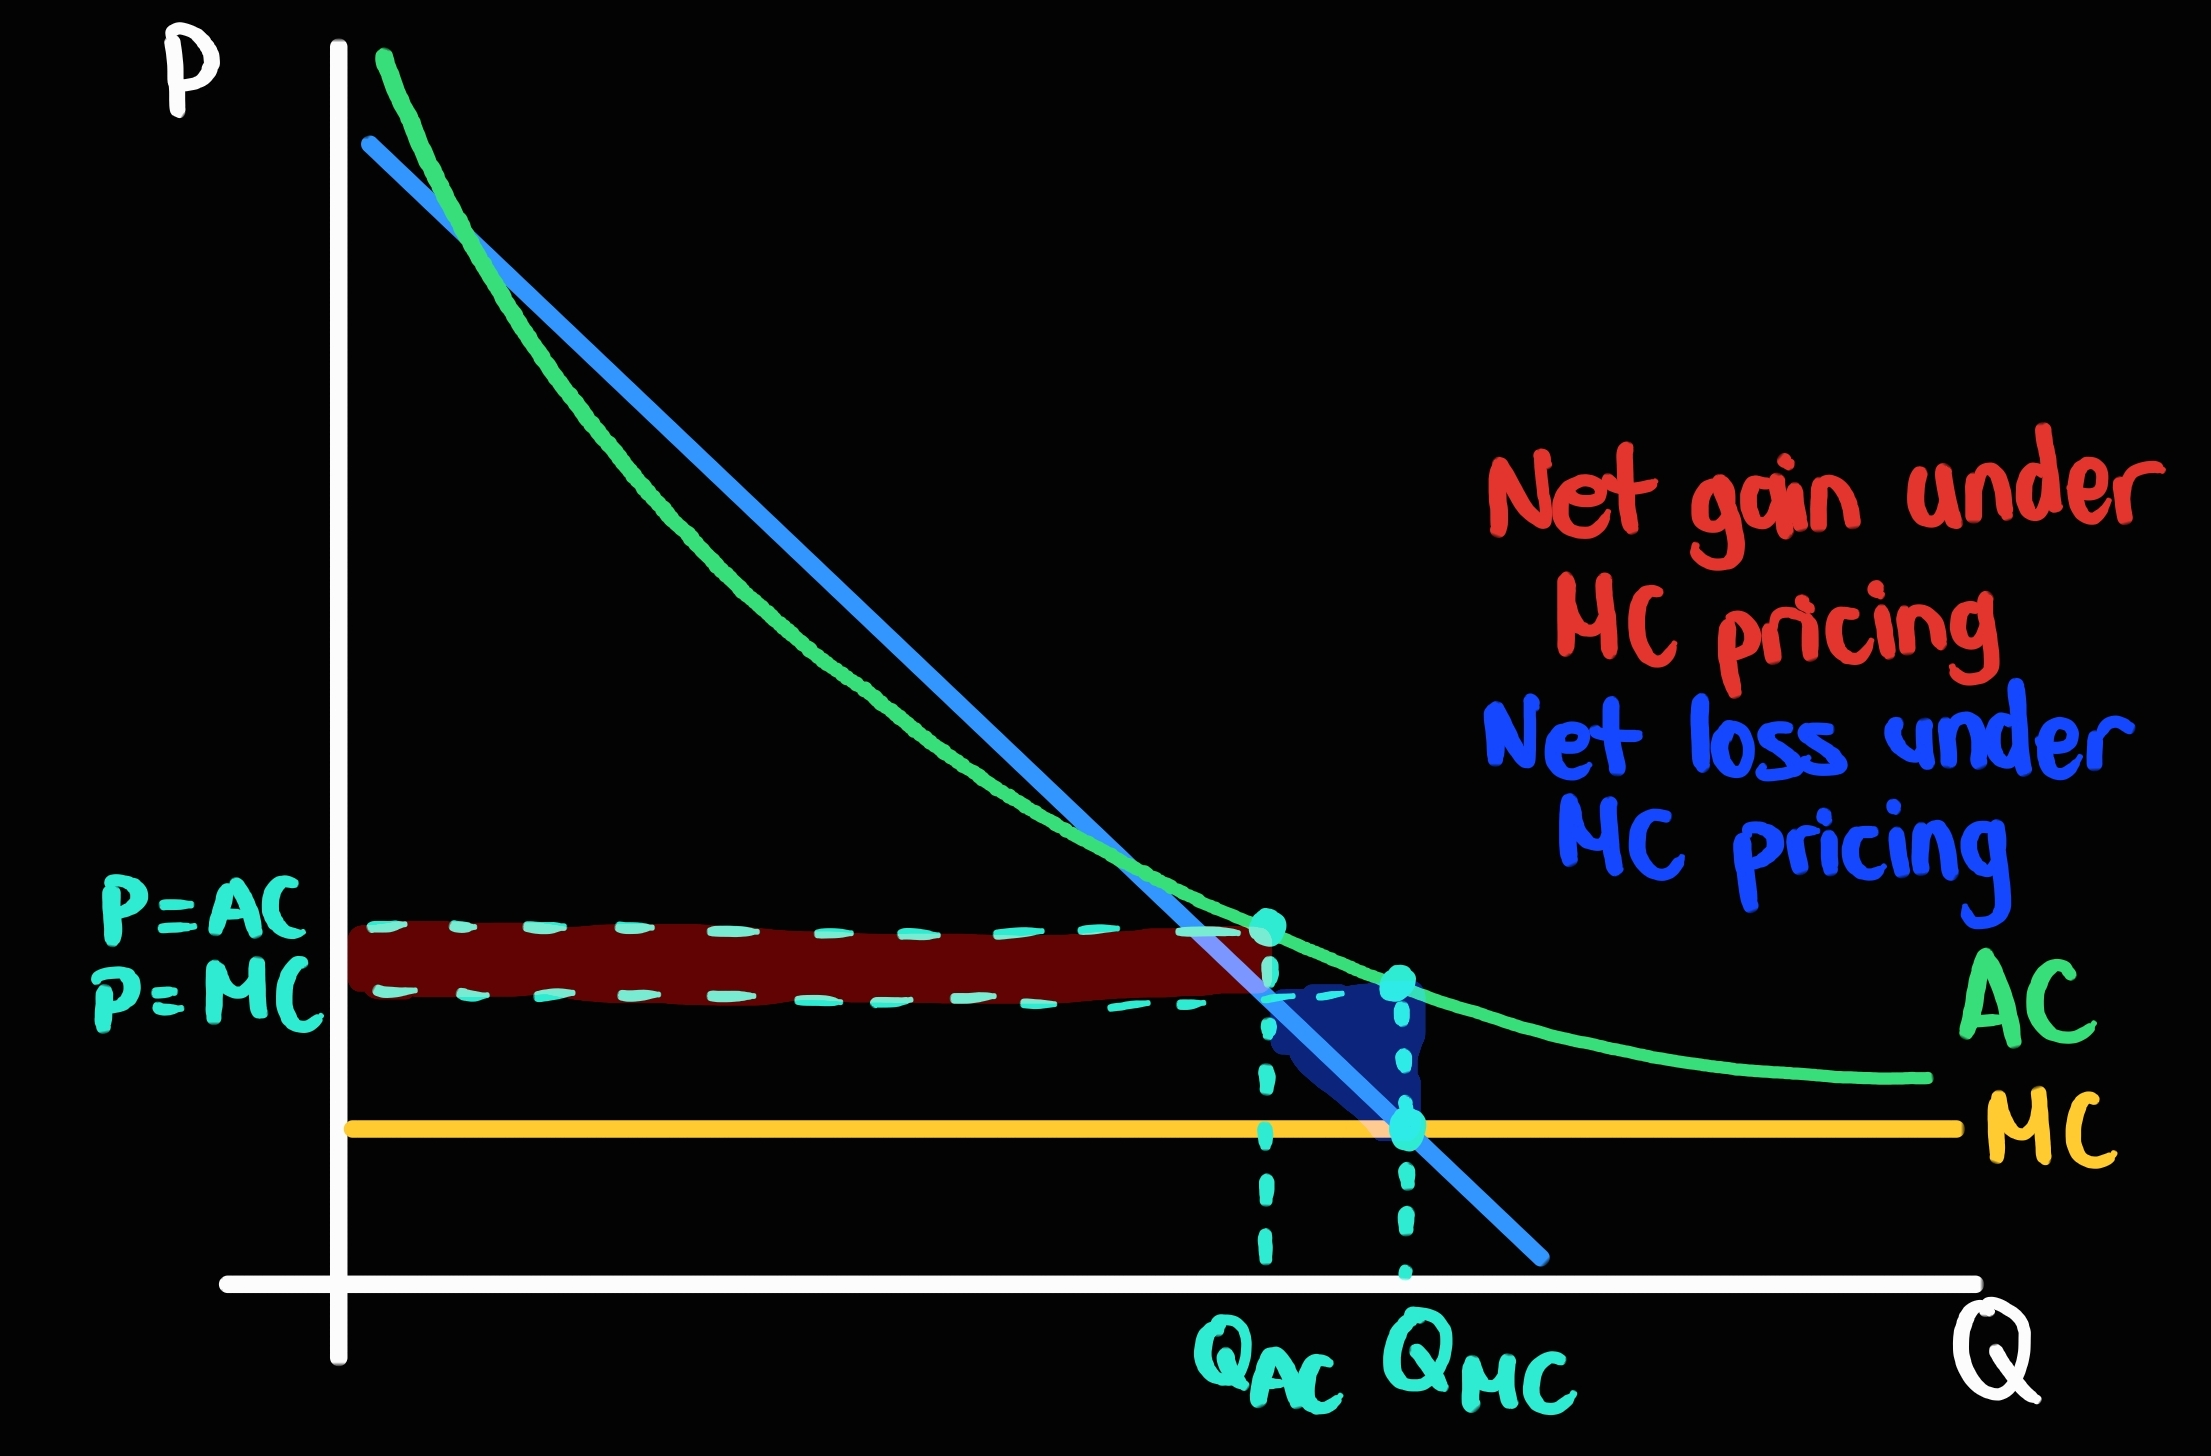 P
Net gain under
MC pricing
Net loss under
MC pricing
P=AC
P=MC
AC
MC
QAC
QMC
Q